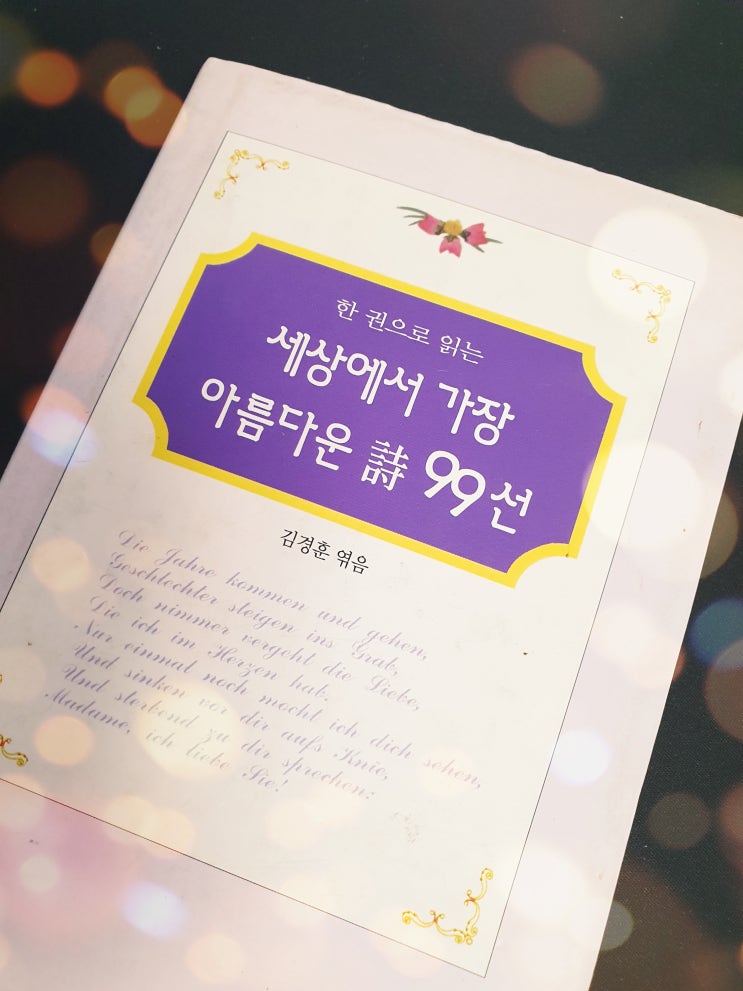 한 권으로 읽는
세상에서 가장
아름다운 詩 99선
김경훈 엮음
Die Jahre kommen und gehen,
Geschlechter steigen ins Grab,
Doch nimmer vergeht die Liebe,
Die ich im Herzen hab.
Nur einmal noch mocht ich dich sehen,
Und sinken vor dir aufs Knie,
Und sterbend zu dir sprechen:
Madame, ich liebe Sie!